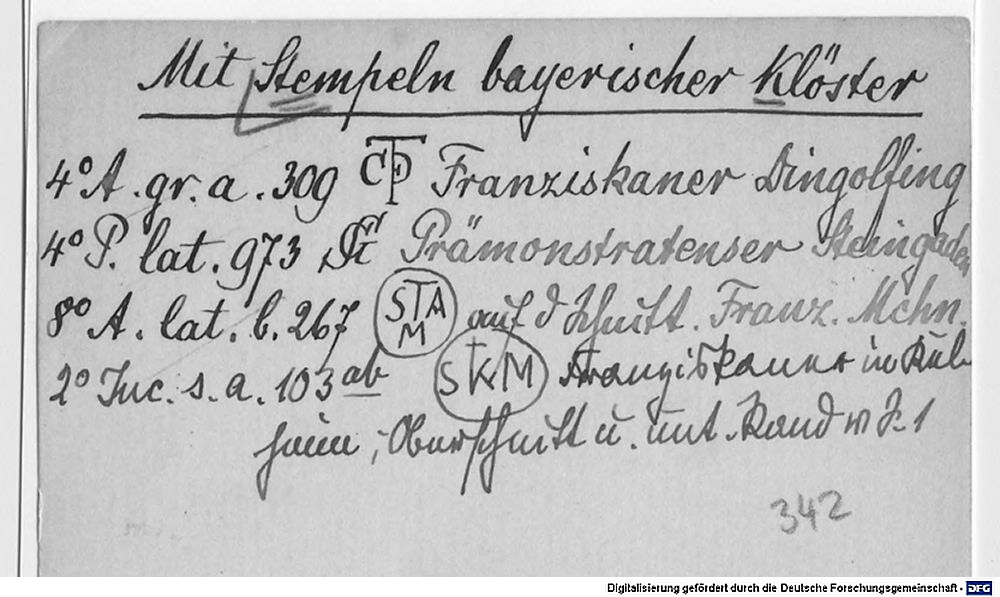 Mit Stempeln bayerischer Klöster
4° A. gr. a. 309 CTP Franziskaner Dingolfing
4° P. lat. 973 Prämonstratenser Steingaden
8° A. lat. b. 267 STAM auf d Schnitt. Franz. Mchn.
2° Inc. s. a. 103 ab SKM Franziskaner in Kel-
heim, Oberschnitt u. unt. Rand
342
Digitalisierung gefördert durch die Deutsche Forschungsgemeinschaft - DFG